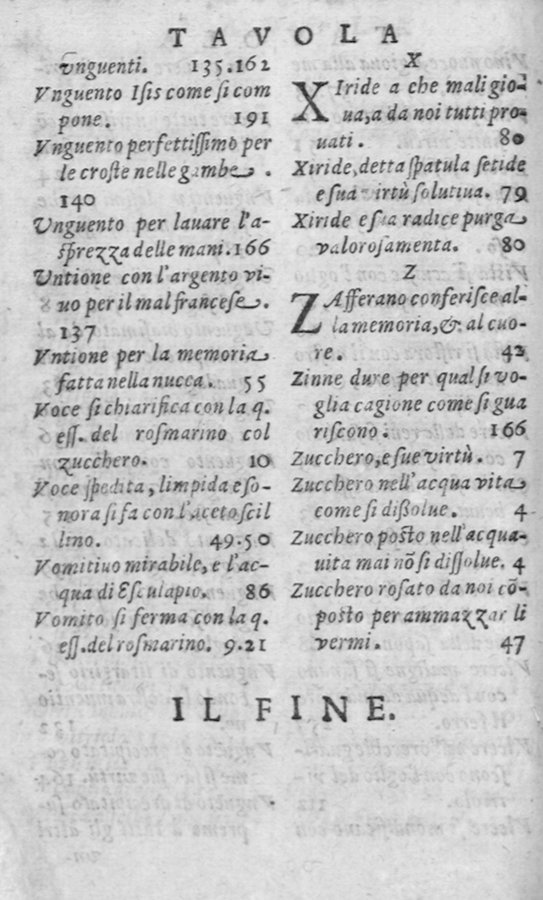 TAVOLA
vnguenti. 135.162
Vnguento Isis come si com
pone. 191
Vnguento perfettissimo per
le croste nelle gambe.
140
Unguento per lauare l'a-
sprezza delle mani. 166
Vntione con l'argento vi-
uo per il mal francese.
137
Vntione per la memoria
fatta nella nucca. 55
Voce si chiarifica con la q.
ess. del rosmarino col
zucchero. 10
Voce spedita, limpida e so-
nora si fa con l'acetoscil
lino. 49.50
Vomitiuo mirabile, e l'ac-
qua di Esculapio. 86
Vomito si ferma con la q.
ess. del rosmarino. 9.21
X
XIride a che mali gio-
ua, a da noi tutti pro-
uati. 80
Xiride, detta spatula fetide
e sua virtù solutiua. 79
Xiride e sua radice purga
valorosamenta. 80
Z
ZAfferano conferisce al-
la memoria, & al cuo-
re. 42
Zinne dure per qual si vo-
glia cagione come si gua
riscono. 166
Zucchero, e sue virtù. 7
Zucchero nell'acqua vita
come si dissolue. 4
Zucchero posto nell'acqua-
uita mai nõ si dissolue. 4
Zucchero rosato da noi cõ-
posto per ammazzar li
vermi. 47
IL FINE.